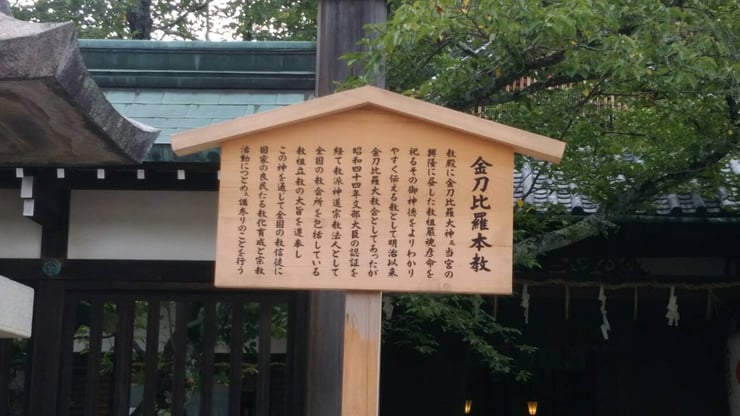 金刀比羅本教
教殿に金刀比羅大神ㇳ当宮の
興隆に尽した教祖厳魂彦命を
祀るその御神徳をよりわかり
やすく伝える教として明治以来
金刀比羅大教会としてあったが
昭和四十四年文部大臣の認証を
経て教派神道宗教法人として
全国の教会所を包括している
教祖立教の大旨を遵奉し
この神を通じて全国の教信徒に
国家の良民たる教化育成と宗教
活動につとめ又講参りのことを行う